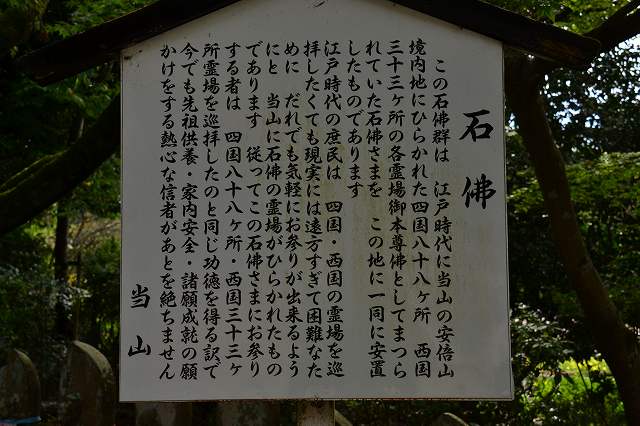 石佛
この石佛群は　江戸時代に当山の安倍山
境内地にひらかれた四国八十八ヶ所　西国
三十三ヶ所の各霊場御本尊佛としてまつら
れていた石佛さまを　この地に一同に安置
したものであります
江戸時代の庶民は　四国・西国の霊場を巡
拝したくても現実には遠方すぎて困難なた
めに　だれでも気軽にお参りが出来るよう
にと　当山に石佛の霊場がひらかれたもの
であります　従ってこの石佛さまにお参り
する者は　四国八十八ヶ所・西国三十三ヶ
所霊場を巡拝したのと同じ功徳を得る訳で
今でも先祖供養・家内安全・諸願成就の願
かけをする熱心な信者があとを絶ちません
当山